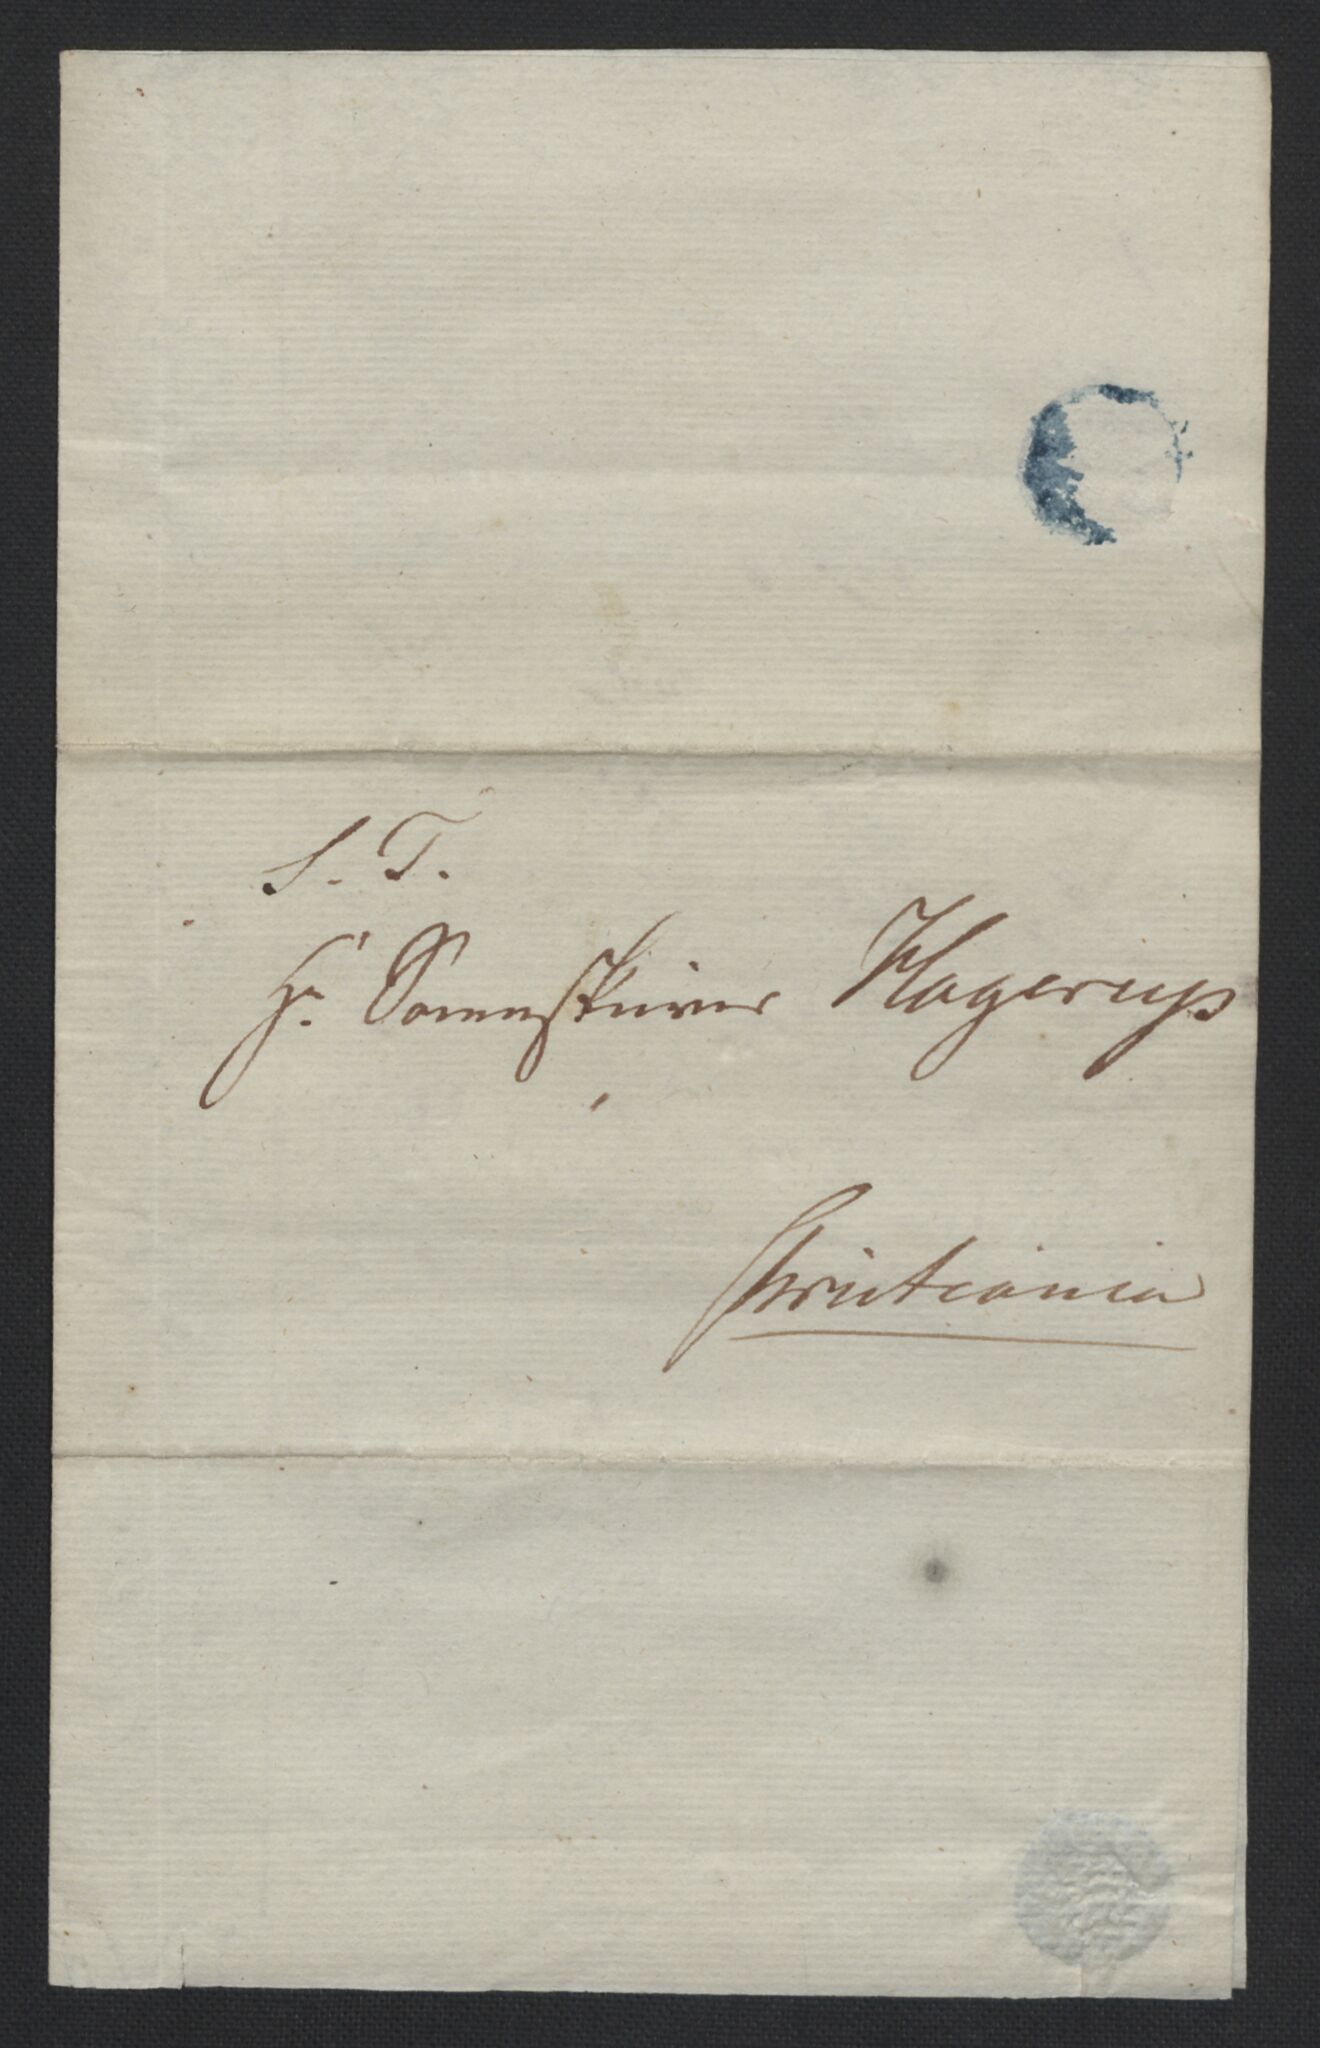 S. T.
Hr. Sorenskriver Hagerup
Christiania